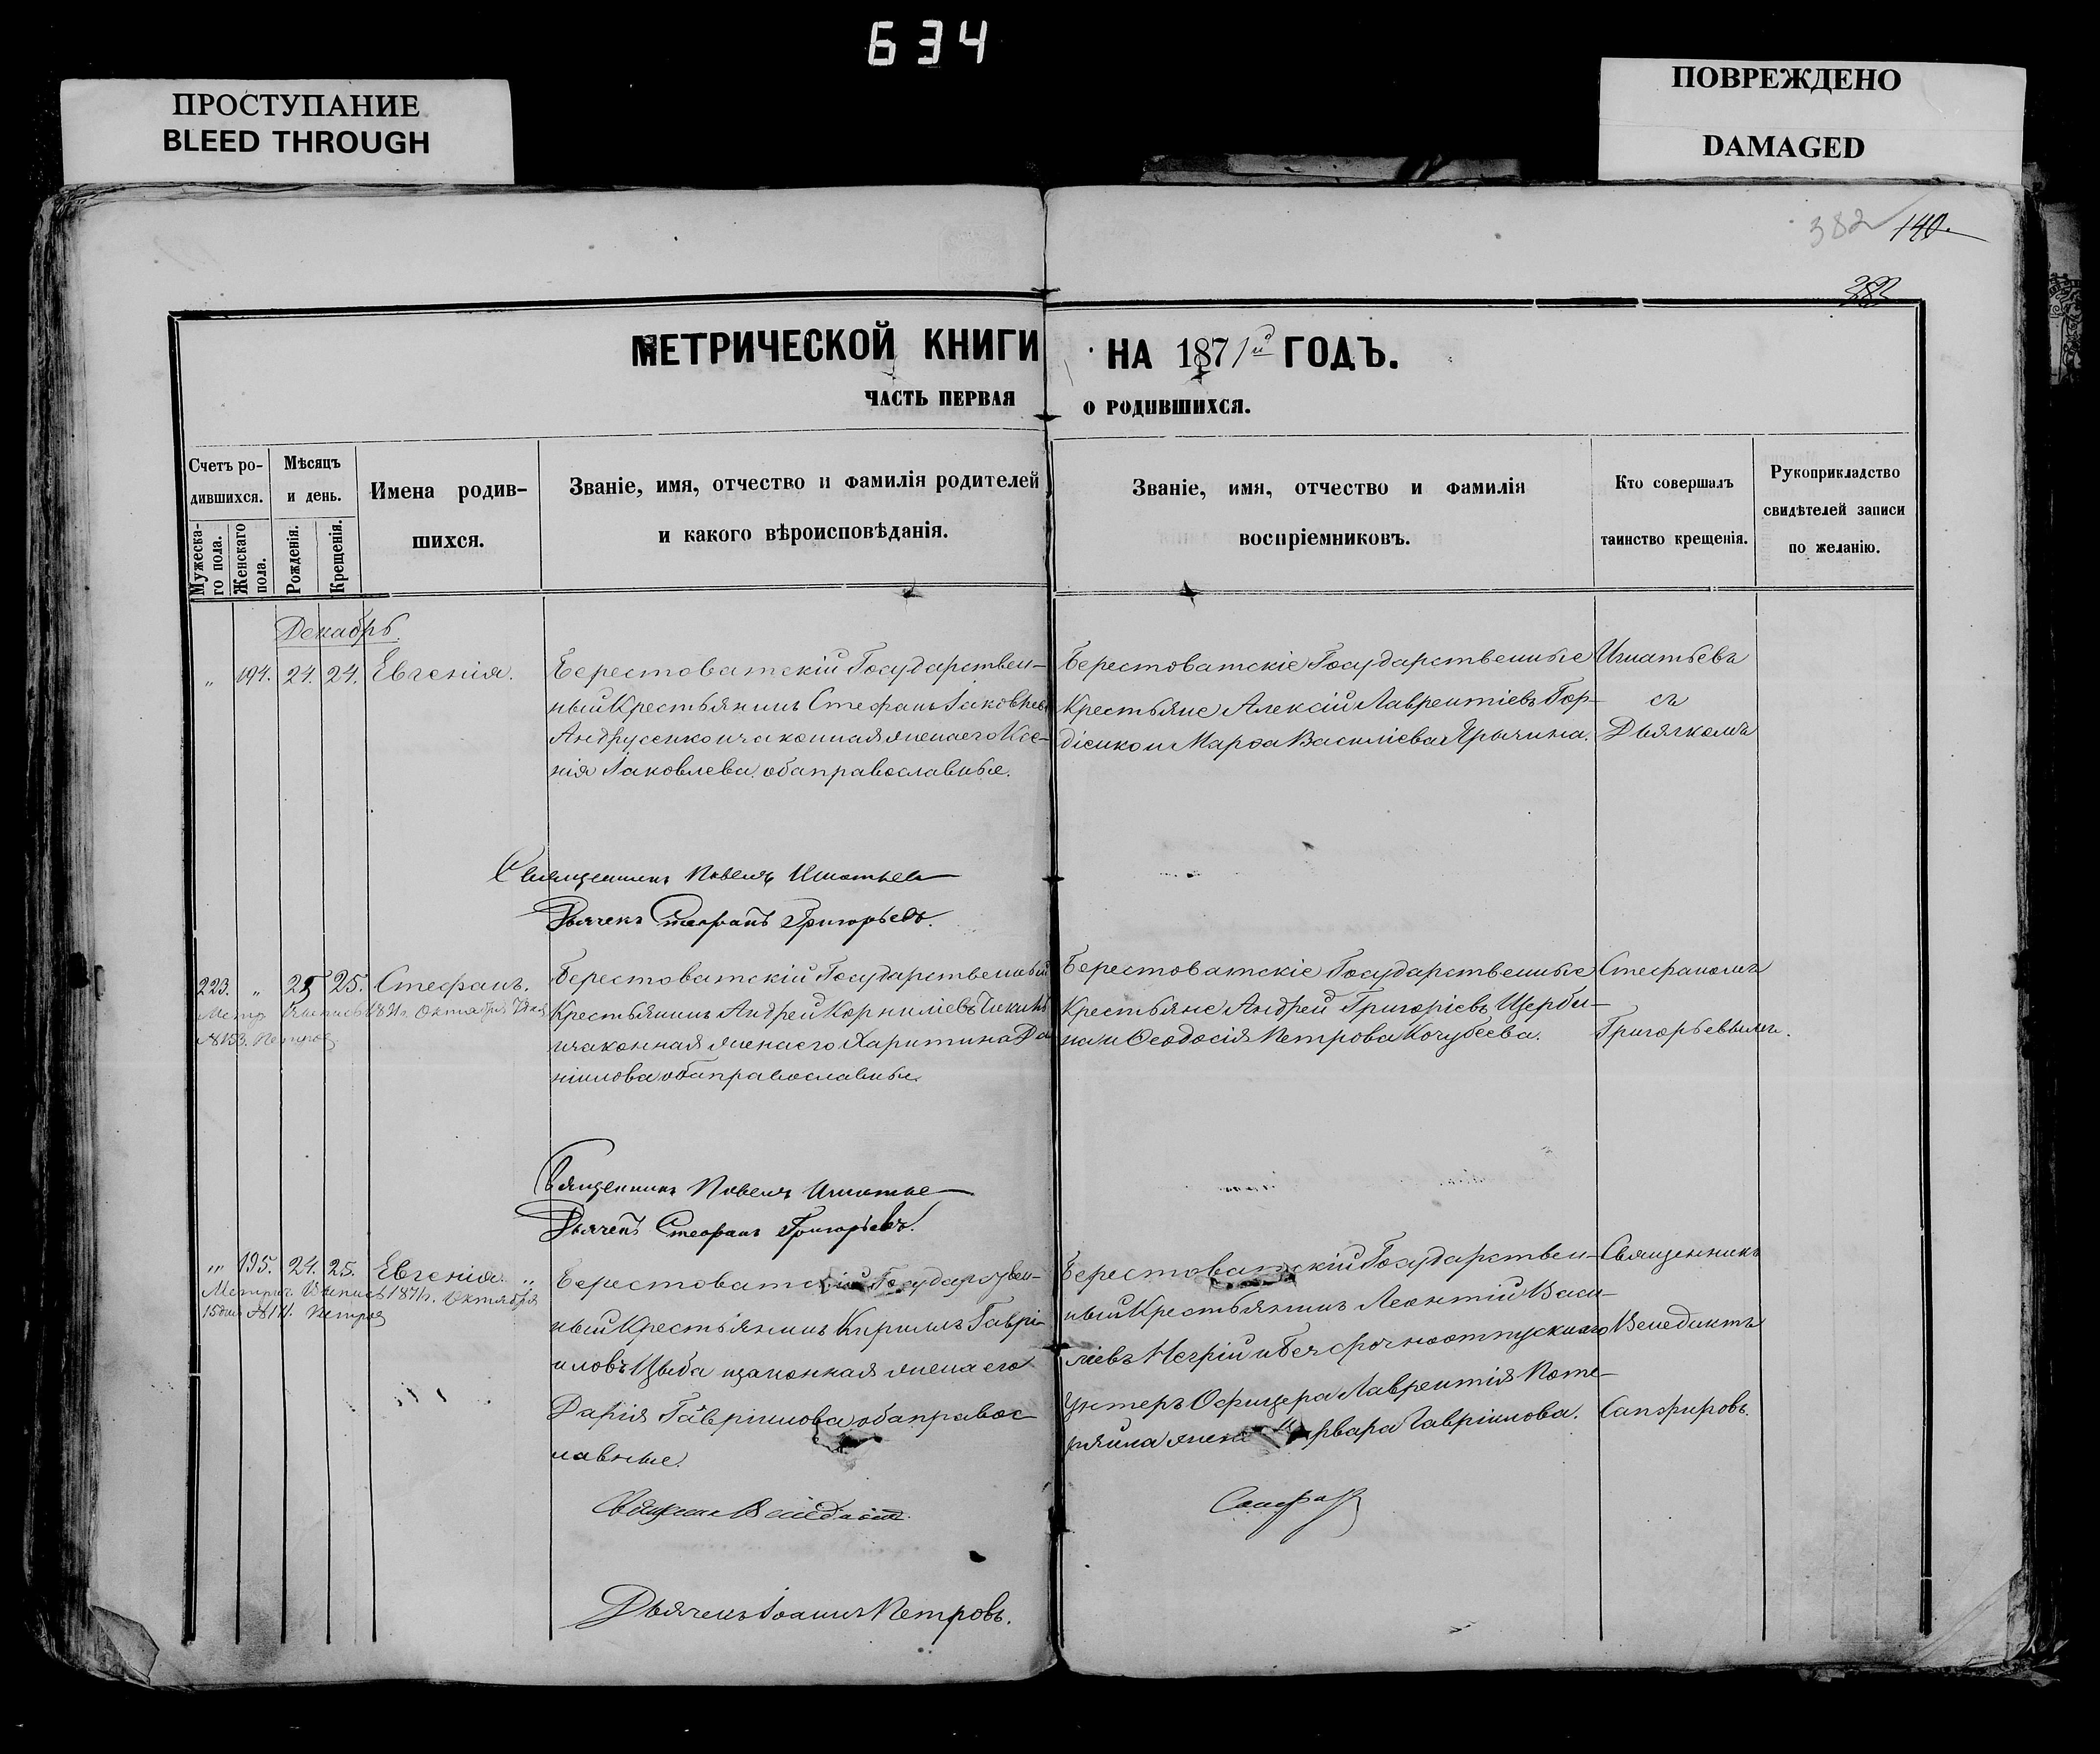 634
ПРОСТУПАНИЕ
BLEED THROUGH
ПОВРЕЖДЕНО
DAMAGED
382 140.
МЕТРИЧЕСКОЙ КНИГИ НА 1871й ГОДЪ.
ЧАСТЬ ПЕРВАЯ О РОДИВШИХСЯ.
Счетъ ро-
дившихся.
Мужеска-
го пола.
Женскаго
пола.
Мѣсяцъ
и день.
Рожденія.
Крещенія.
Имена родив-
шихся.
Званіе, имя, отчество и фамилія родителей
и какого вѣроисповѣданія.
Званіе, имя, отчество и фамилія
воспріемниковъ.
Кто совершалъ
таинство крещенія.
Рукоприкладство
свидѣтелей записи
по желанію.
Декабрь.
„ 194. 24. 24. Евгенія.
Берестоватскій Государствен-
ный Крестьянинъ Стефанъ Іаковлевъ
Андрусенко и законная жена его Ксе-
нія Іаковлева, оба православные.
Берестоватскіе Государственные
Крестьяне Алексій Лаврентіевъ Гор-
діенко и Марѳа Василіева Ярычина.
Игнатьевъ
съ
Дьячкомъ
Священникъ Павелъ Игнатьевъ
Дьячекъ Стефанъ Григорьевъ.
223. „ 25 25. Стефанъ.
Метр Выпись 1891г. Октября
№153. Петров
Берестоватскій Государственный
Крестьянинъ Андрей Корниліевъ
и законная жена его Харитина Да
ніилова оба православные.
Берестоватскіе Государственные
Крестьяне Андрей Григоріевъ Щерби-
на и Ѳеодосія Петрова Кочубеева.
Стефаномъ
Григорьевымъ.
Священникъ Павелъ Игнатье
Дьячекъ Стефанъ Григорьевъ.
„ 195. 24. 25. Евгенія. „
Метрич. Выпись 1891г. Октября
15 дня №171. Петров
Берестоватскій Государствен-
ный Крестьянинъ Кириллъ Гаврі-
иловъ Цыба и законная жена его
Дарія Гавріилова оба правос
лавные.
Берестоватскій Государствен-
ный Крестьянинъ Леонтій Васи-
ліевъ Негрій и Безсрочноотпускнаго
Унтеръ Офицера Лаврентія Поте-
ряйла жена Варвара Гавріилова.
Священникъ
Венедиктъ
Сапфировъ.
Священникъ Венедиктъ Сапфиров
Дьячекъ Іоаннъ Петровъ.